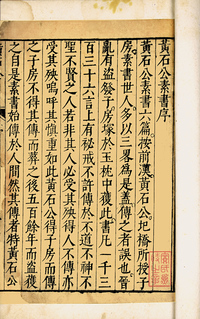 黃石公素書序
黃石公素書六篇按前漢黃石公圯橋所授子
房素書世人多以三畧為是蓋傳之者誤也晉
亂有盜發子房塚於玉枕中獲此書凡一千三
百三十六言上有秘戒不許傳於不道不神不
聖不賢之人若非其人必受其殃得人不傳亦
受其殃嗚呼其慎重如此黃石公得子房而傳
之子房不得其傳而葬之後五百餘年而盜獲
之自是素書始傳於人間然其傳者特黃石公